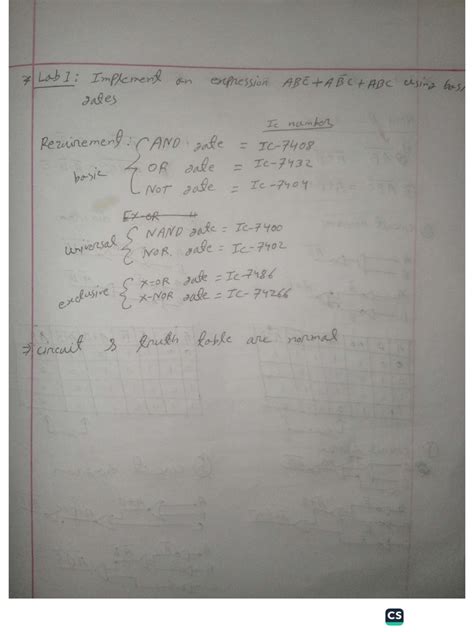 * Lab 1: Implement an expression ABC̄+AB̄C+ABC using basi
gates
Ic number
Requirement: AND gate = IC-7408
basic OR gate = IC-7432
NOT gate = IC-7404
EX-OR
universal NAND gate = IC-7400
NOR gate = IC-7402
exclusive X-OR gate = IC-7486
X-NOR gate = IC-74266
→ circuit & truth table are normal
CS